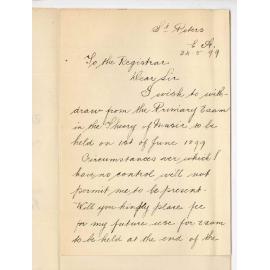 St Peters
E A.
24 5 99
To the Registrar
Dear Sir
I wish to with-
draw from the Primary Exam
in the Theory of Music to be
held on 1st of June 1899
Circumstances over which I
have no control will not
permit me to be present.
Will you kindly place fee
for my future use for exam
to be held at the end of the